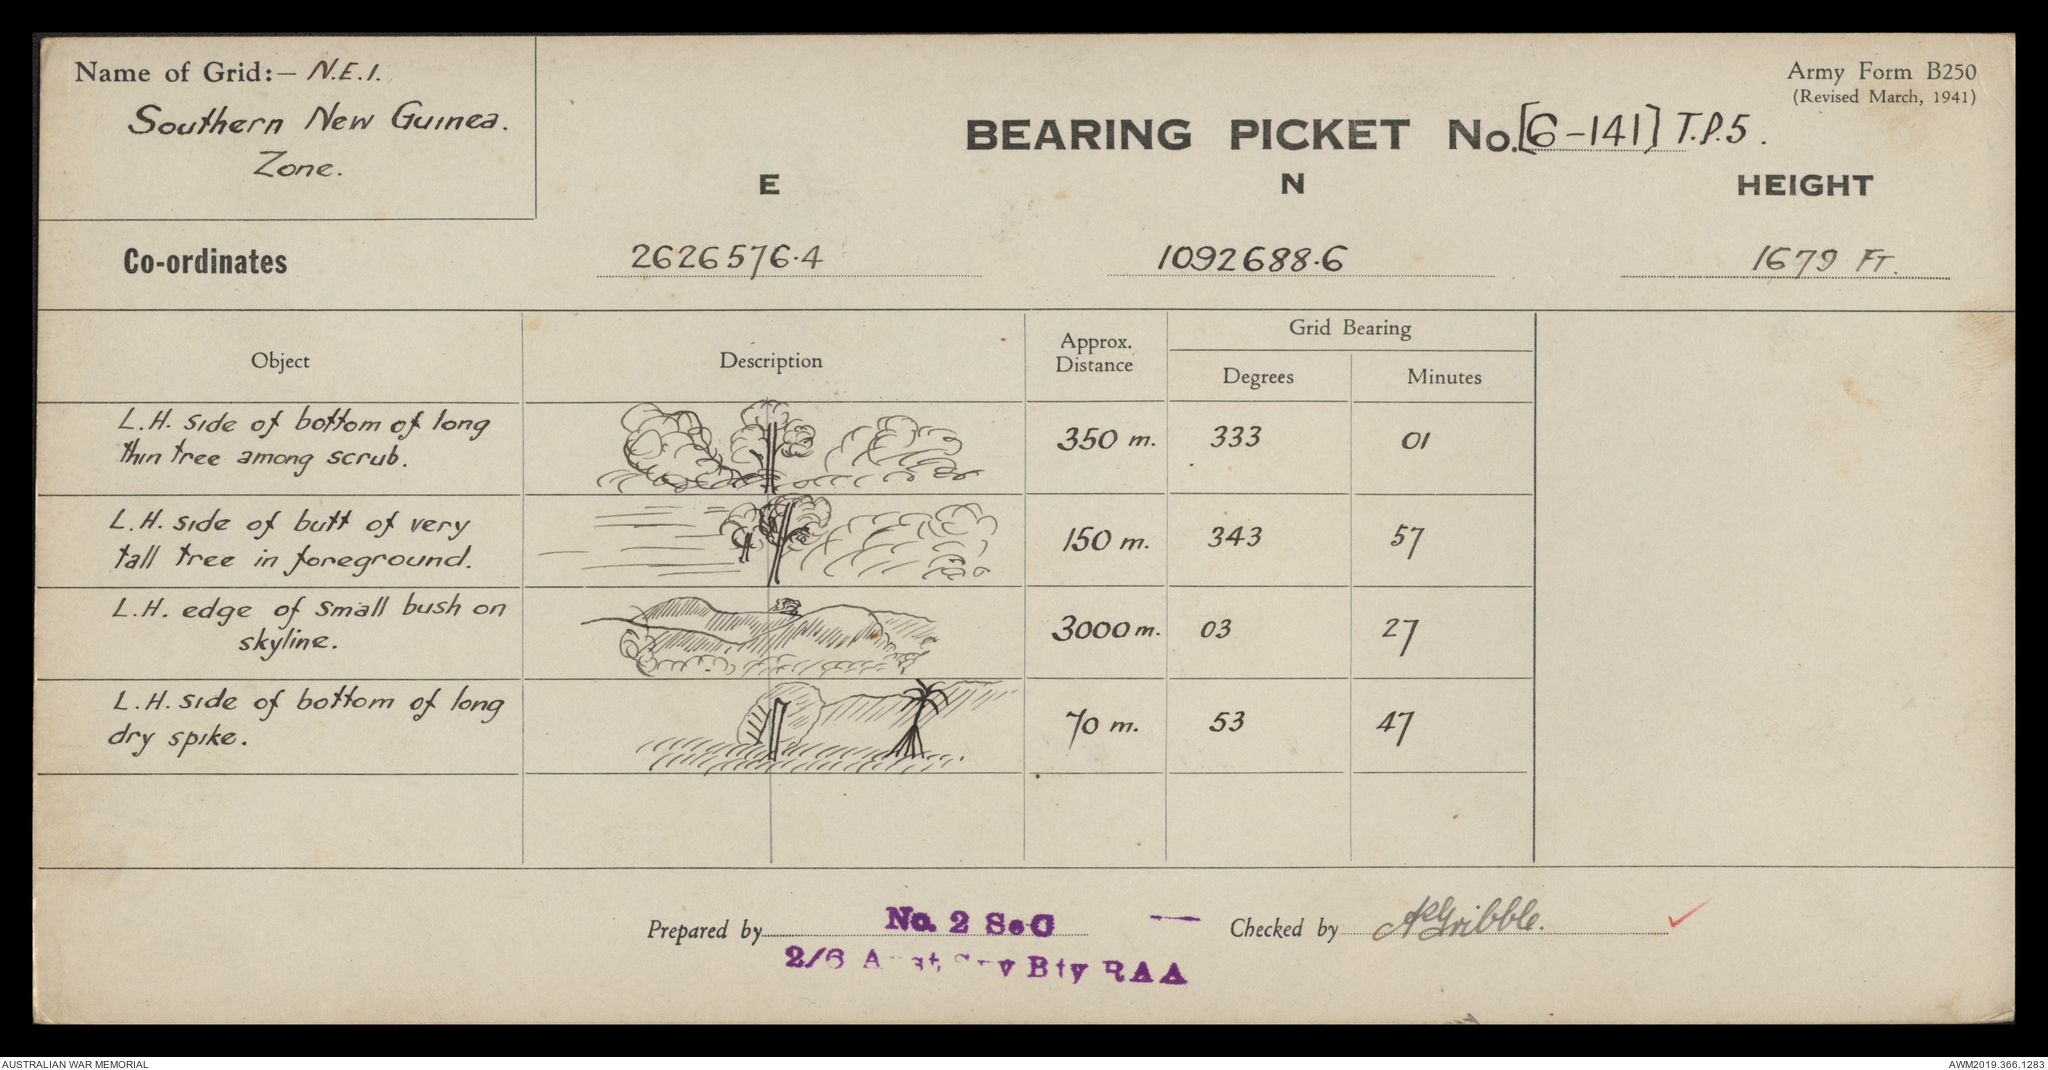 Name of Grid:— N.E.I.
Southern New Guinea.
Zone.
Army Form B250
(Revised March, 1941)
BEARING PICKET No. [6-141] T.P.5.
E N HEIGHT
Co-ordinates 2626576.4 1092688.6 1679 FT.
Object Description Approx. Distance Grid Bearing
Degrees Minutes
L.H. side of bottom of long
thin tree among scrub.
350 m. 333 01
L.H. side of butt of very
tall tree in foreground.
150 m. 343 57
L.H. edge of small bush on
skyline.
3000 m. 03 27
L.H. side of bottom of long
dry spike.
70 m. 53 47
Prepared by No. 2 SeC — Checked by Gribble.
2/6 Bty RAA
AUSTRALIAN WAR MEMORIAL
AWM2019.366.1283